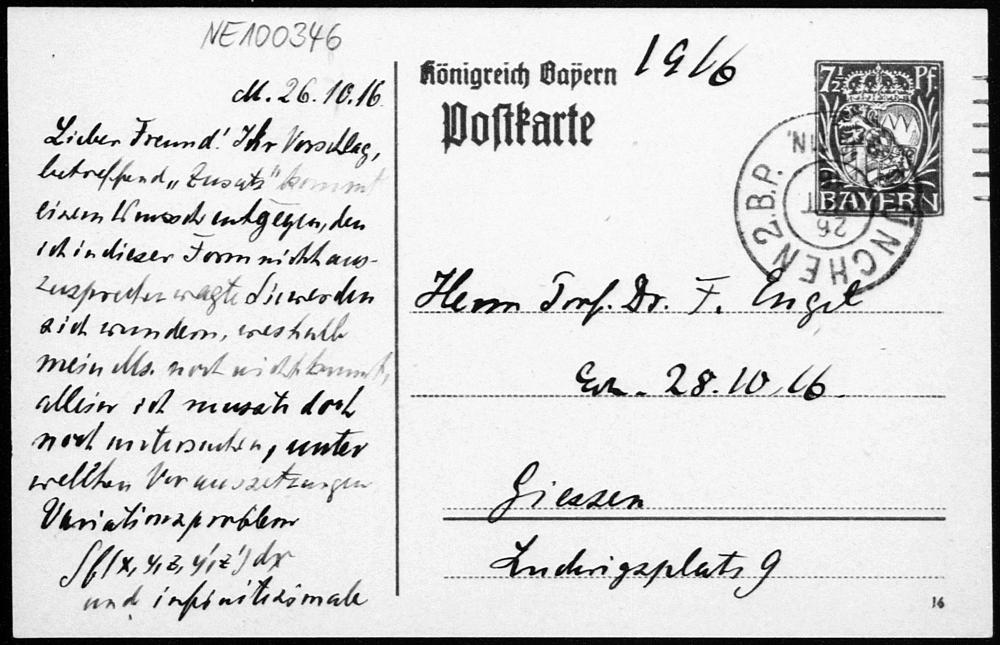 NE100346
M. 26.10.16
Lieber Freund! Ihr Vorschlag,
betreffend „Zusatz" kommt
einem Wunsch entgegen, den
ich in dieser Form nicht aus-
zusprechen wagte. Sie werden
sich wundern, weshalb
mein Ms. noch nicht kommt,
allein ich musste doch
noch untersuchen, unter
welchen Voraussetzungen
Variationsproblem
∫f(x, y, z, y', z') dx
und infinitesimale
Königreich Bayern
1916
Postkarte
7½ Pf.
BAYERN
MÜNCHEN 2. B.P.
26
Herrn Prof. Dr. F. Engel
28.10.16.
Giessen
Ludwigsplatz 9
16